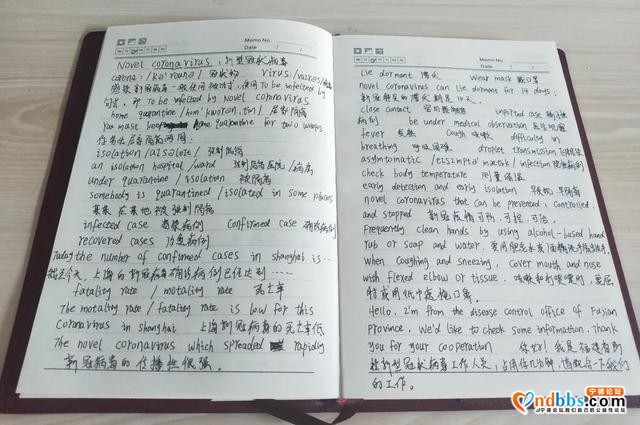 Memo No.
Date / /
Novel coronavirus, 新型冠状病毒
corona: /kə'rəunə/ 冠状物 virus: /
感染新冠病毒一般使用被动式, 使用 To be infected by
句式, 即 To be infected by Novel coronavirus
home quarantine /həm 'kworən.tin/ 居家隔离
You must keep home quarantine for two weeks.
你务必居家隔离两周.
isolation /aisəletə/ 强制隔离
an isolation hospital /ward 强制隔离医院/病房
under quarantine / isolation 被隔离
somebody is quarantined / isolated in some places
某某在某地被强制隔离
infected case 感染病例 Confirmed case 确诊病例
recovered cases 治愈病例
Today the number of confirmed cases in shanghai is ...
截至今天, 上海的新冠病毒确诊病例已经达到 ......
fatality rate / motality rate 死亡率
The motality rate / fatality rate is low for this
Coronavirus in shanghai 上海新冠病毒的死亡率低
The novel coronavirus which spreaded rapidly
新冠病毒的传播性很强.
Memo No.
Date / /
Lie dormant 潜伏 Wear mask 戴口罩
novel coronavirus can lie dormant for 14 days.
新冠肺炎的潜伏期是14天.
close contact 密切接触者 imported case 输入性
病例 be under medical observation 医学观察
fever 发热 Cough 咳嗽 difficulty in
breathing 呼吸困难 droplet transmission 飞沫传播
asymtomatic / infection 无症状感染病例
check body temperature 测量体温
early detection and early isolation 早发现, 早隔离
novel coronavirus that can be prevented, controlled.
and stopped 新冠疫情可防, 可控, 可治.
Frequently clean hands by using alcohol-based hand
rub or soap and water. 要用肥皂水或酒精洗手液洗手.
when Coughing and sneezing, Cover mouth and nose
with flexed elbow or tissue. 咳嗽和打喷嚏时, 要屈
肘或用纸巾遮掩口鼻.
Hello, I'm from the disease control office of Fujian
Province. We'd like to check some information. Thank
you for your cooperation 你好! 我是福建省新
控新型冠状病毒工作人员, 占用你几分钟, 请配合一下我们
的工作.
ndbbs.com
宁德论坛 我们自己的公益性论坛
宁德论坛